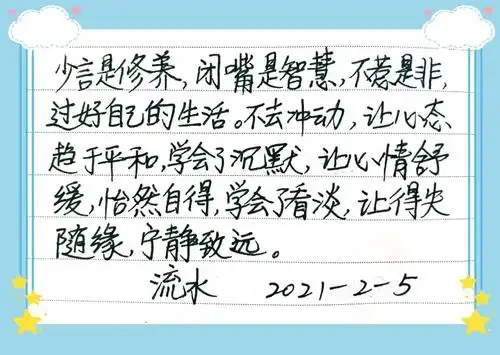 少言是修养,闭嘴是智慧,不惹是非,
过好自己的生活。不去冲动,让心态
趋于平和,学会了沉默,让心情舒
缓,怡然自得,学会了看淡,让得失
随缘,宁静致远。
流水 2021-2-5